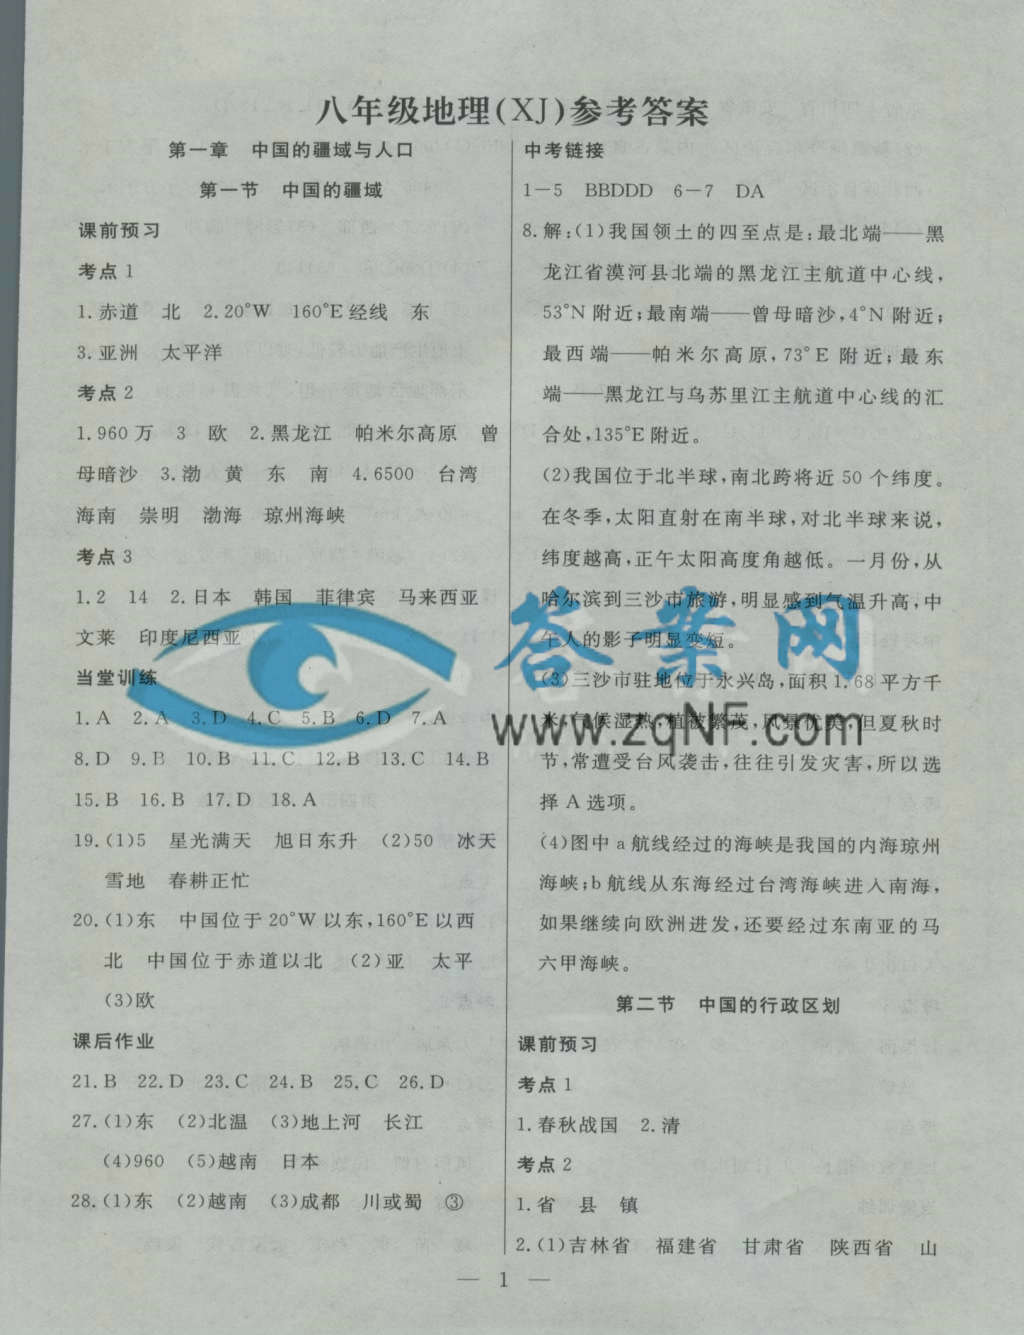 八年级地理(XJ)参考答案
第一章　中国的疆域与人口
第一节　中国的疆域
课前预习
考点1
1.赤道　北　2.20°W　160°E经线　东
3.亚洲　太平洋
考点2
1.960万　3　欧　2.黑龙江　帕米尔高原　曾
母暗沙　3.渤　黄　东　南　4.6500　台湾
海南　崇明　渤海　琼州海峡
考点3
1.2　14　2.日本　韩国　菲律宾　马来西亚
文莱　印度尼西亚
当堂训练
1.A　2.A　3.D　4.C　5.B　6.D　7.A
8.D　9.B　10.B　11.C　12.B　13.C　14.B
15.B　16.B　17.D　18.A
19.(1)5　星光满天　旭日东升　(2)50　冰天
雪地　春耕正忙
20.(1)东　中国位于20°W以东,160°E以西
北　中国位于赤道以北　(2)亚　太平
(3)欧
课后作业
21.B　22.D　23.C　24.B　25.C　26.D
27.(1)东　(2)北温　(3)地上河　长江
(4)960　(5)越南　日本
28.(1)东　(2)越南　(3)成都　川或蜀　③
中考链接
1—5　BBDDD　6—7　DA
8.解:(1)我国领土的四至点是:最北端——黑
龙江省漠河县北端的黑龙江主航道中心线,
53°N附近;最南端——曾母暗沙,4°N附近;
最西端——帕米尔高原,73°E附近;最东
端——黑龙江与乌苏里江主航道中心线的汇
合处,135°E附近。
(2)我国位于北半球,南北跨将近50个纬度。
在冬季,太阳直射在南半球,对北半球来说,
纬度越高,正午太阳高度角越低。一月份,从
哈尔滨到三沙市旅游,明显感到气温升高,中
午人的影子明显变短。
(3)三沙市驻地位于永兴岛,面积1.68平方千
米,气候湿热,植被繁茂,风景优美,但夏秋时
节,常遭受台风袭击,往往引发灾害,所以选
择A选项。
(4)图中a航线经过的海峡是我国的内海琼州
海峡;b航线从东海经过台湾海峡进入南海,
如果继续向欧洲进发,还要经过东南亚的马
六甲海峡。
第二节　中国的行政区划
课前预习
考点1
1.春秋战国　2.清
考点2
1.省　县　镇
2.(1)吉林省　福建省　甘肃省　陕西省　山
— 1 —
答案网
www.zqNF.com